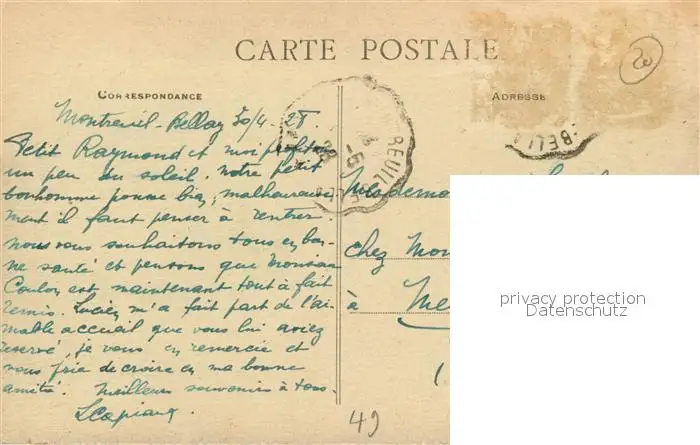 CARTE POSTALE
20
CORRESPONDANCE
ADRESSE
Montreuil-Bellay 30/4-28
Petit Raymond et moi profitons
un peu du soleil. Notre petit
bonhomme pousse bien, malheureuse
ment il faut penser à rentrer.
Nous vous souhaitons tous en bon-
ne santé et pensons que Monsieur
Coulon est maintenant tout à fait
remis. Lucien m'a fait part de l'ai-
mable accueil que vous lui aviez
reservé, je vous en remercie et
vous prie de croire en ma bonne
amitié. Meilleurs souvenirs à tous.
Mademoi
chez Mon
à
49
privacy protection
Datenschutz